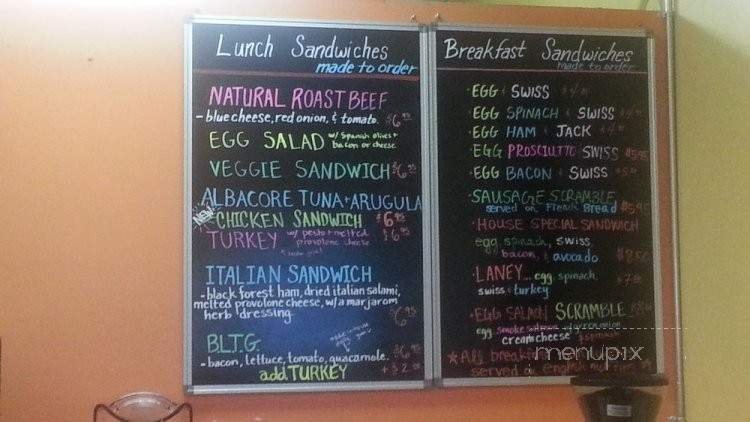 Lunch Sandwiches
made to order
NATURAL ROAST BEEF
- blue cheese, red onion, & tomato. $6.95
EGG SALAD w/ Spanish olives +
bacon or cheese
VEGGIE SANDWICH $6.95
ALBACORE TUNA + ARUGULA
NEW CHICKEN SANDWICH $6.95
TURKEY w/ pesto + melted
provolone cheese $6.95
ITALIAN SANDWICH
- black forest ham, dried italian salami,
melted provolone cheese, w/a marjarom
herb dressing. $6.95
B.L.T.G.
- bacon, lettuce, tomato, guacamole. $6.95
add TURKEY + $2.00
Breakfast Sandwiches
made to order
• EGG & SWISS
• EGG SPINACH & SWISS
• EGG HAM & JACK
• EGG PROSCIUTTO SWISS $5.95
• EGG BACON & SWISS
• SAUSAGE SCRAMBLE
served on French Bread $5.95
• HOUSE SPECIAL SANDWICH
egg spinach, swiss
bacon, & avocado
• LANEY... egg spinach
swiss & turkey
• EGG SALMON SCRAMBLE
egg smoke salmon
cream cheese & spinach
★ All
served on english muffins ★
menupix